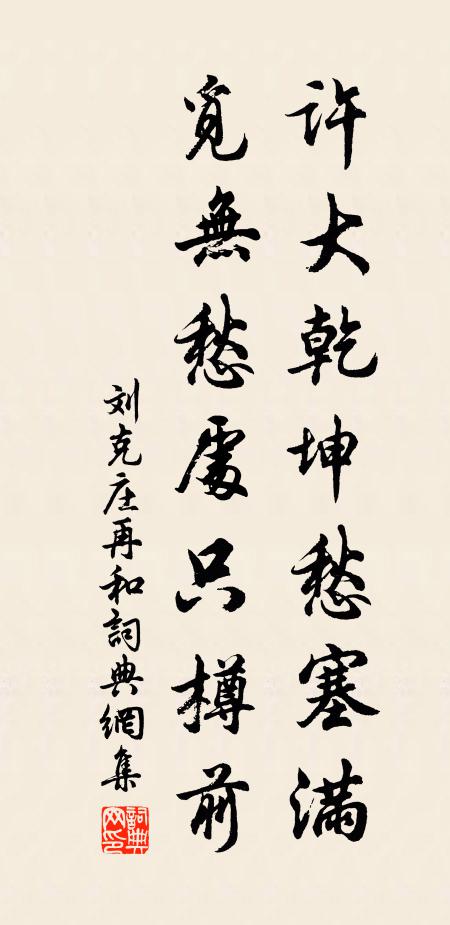 許大乾坤愁塞滿
覓無愁處只樽前
刘克庄再和詞典網集
詞典網印